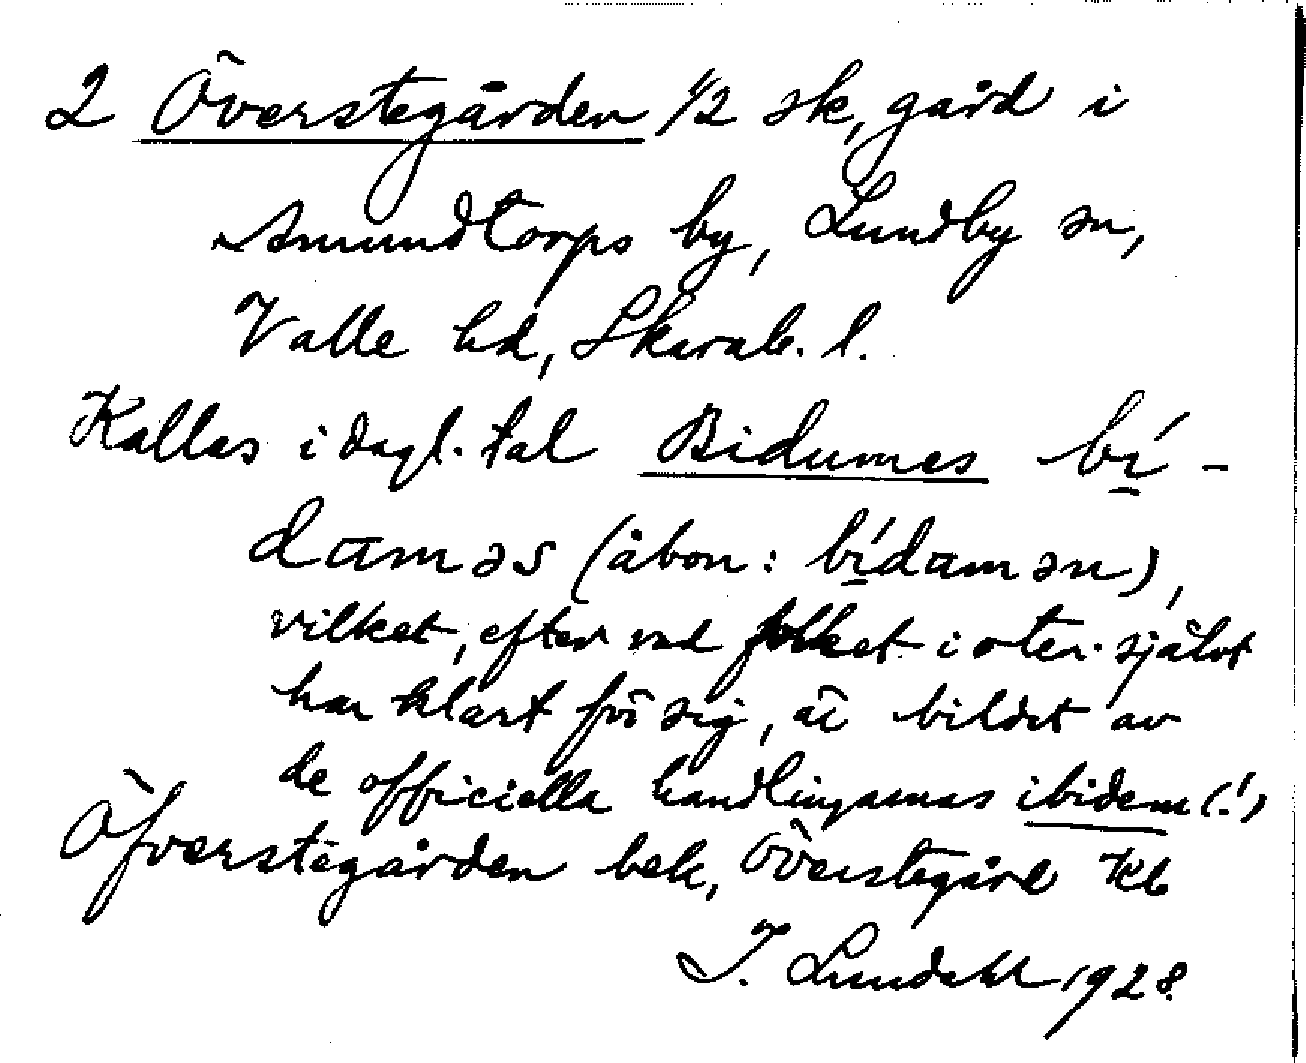 2 Överstegården 1/2 sk, gård i
Amundtorps by, Lundby sn,
Valle hd, Skarab. l.
Kallas i dagl. tal Bidumes bí-
damǝs (åbon: bídamǝn),
vilket, efter vad folket i orten självt
har klart för sig, är bildat av
de officiella handlingarnas ibidem (!)
Öfverstegården bek, Överstegård Kb
I. Lundahl 1928.